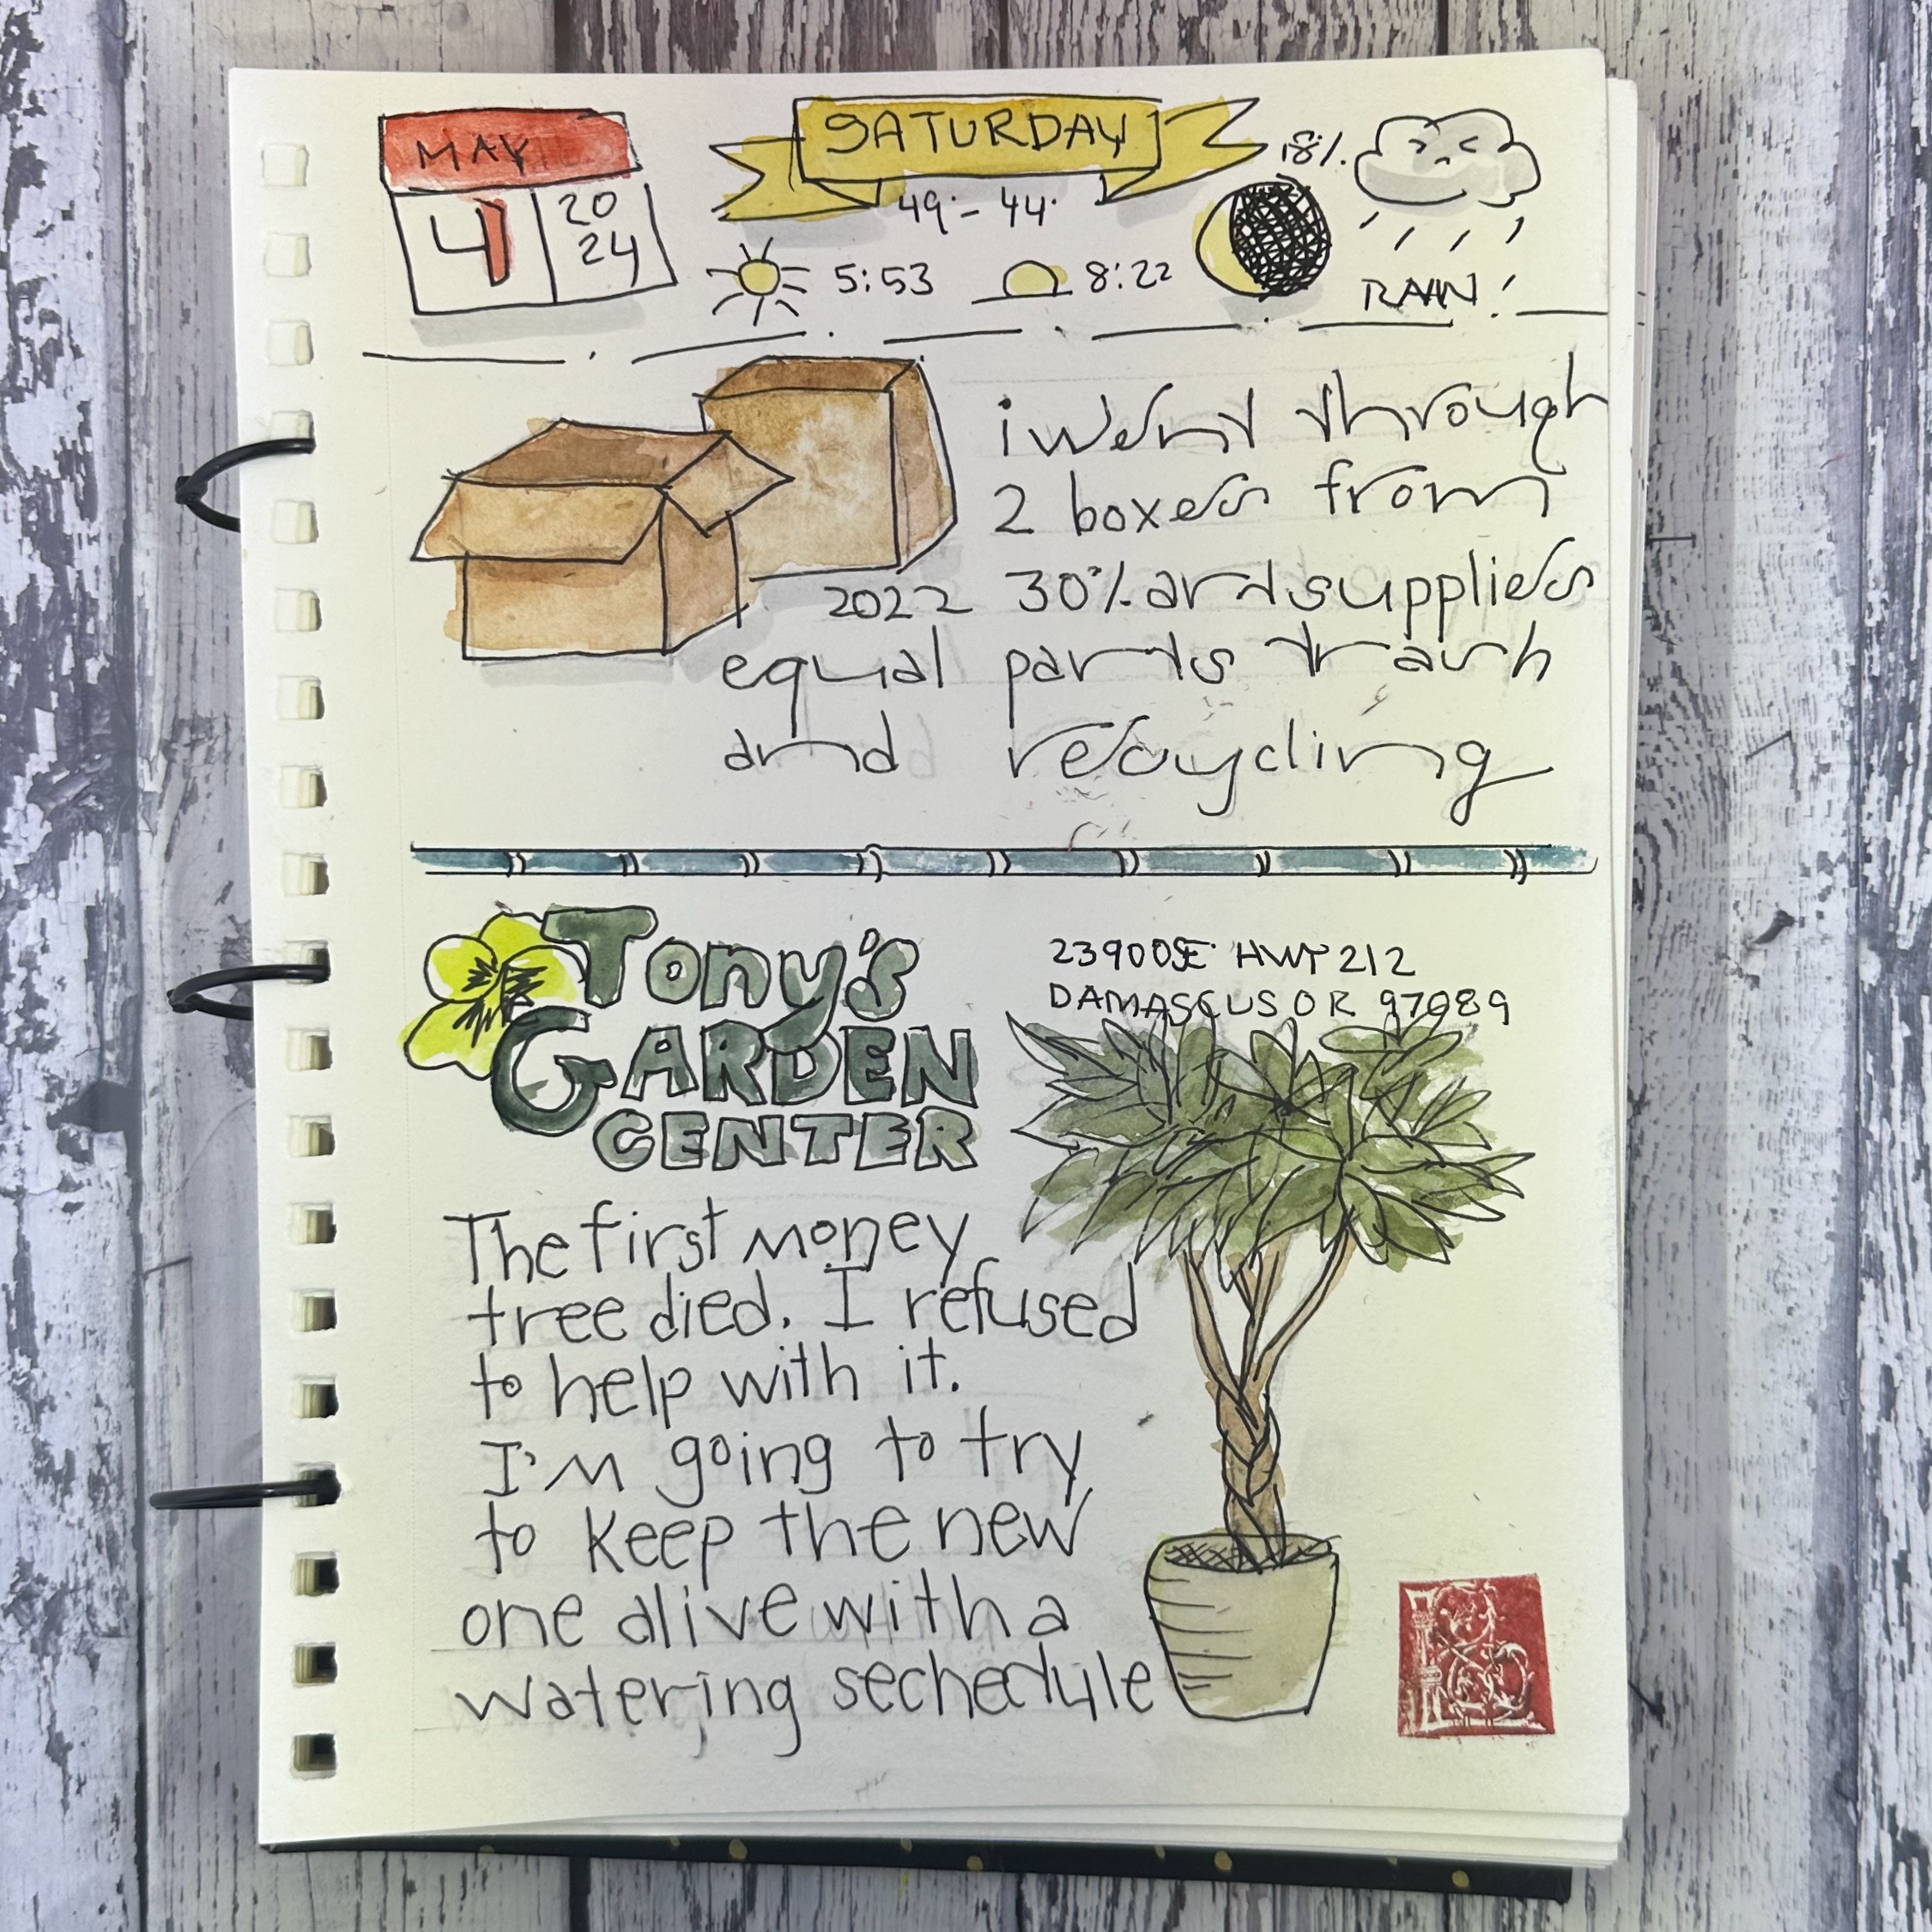 MAY
4
20
24
SATURDAY
49° - 44°
5:53
8:22
18%
RAIN!
i went through
2 boxes from
2022 30% art supplies
equal parts trash
and recycling
Tony's
GARDEN
CENTER
23900 SE HWY 212
DAMASCUS OR 97089
The first money
tree died. I refused
to help with it.
I'm going to try
to keep the new
one alive with a
watering sechedule